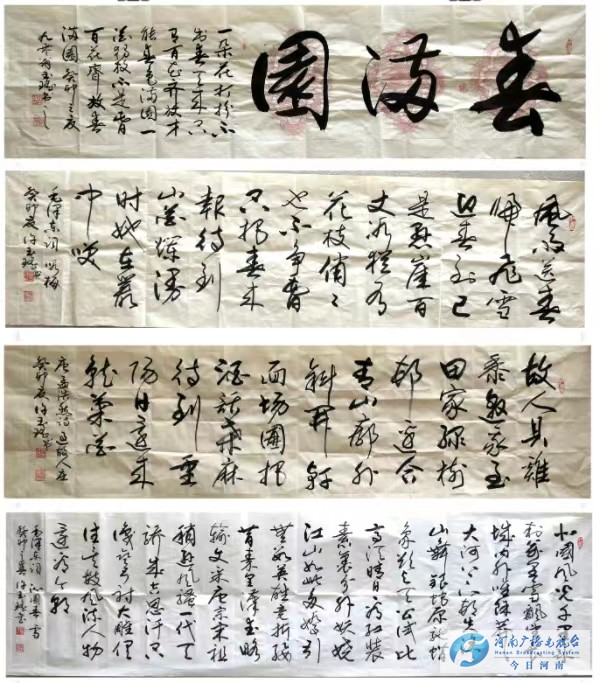 春满園
一朵花打扮不
出春天来只
有百花齐放才
能春色满園一
花独放不是春
百花齐放春
满園 癸卯之夏
风雨送春
归飞雪
迎春到已
是悬崖百
丈冰犹有
花枝俏〻
也不争春
只把春来
报待到
山花烂漫
时她在丛
中笑
毛泽东词 咏梅
癸卯夏 许玉
故人具雞
黍邀我至
田家绿樹
邨边合
青山郭外
斜開轩
面场圃把
酒话桑麻
待到重
陽日還来
就菊花
唐孟浩然诗 过故人庄
癸卯夏 许玉
北國风光千里冰
封万里雪飘望长
城内外惟余莽〻
大河上下顿失滔〻
山舞银蛇原驰蜡
象欲与天公试比
高须晴日看红装
素裹分外妖娆
江山如此多娇引
無数英雄竞折腰
惜秦皇汉武略
输文采唐宗宋祖
稍逊风骚一代天
骄成吉思汗只
识弯弓射大雕俱
往矣数风流人物
還看今朝
毛泽东词 沁园春雪
癸卯之夏 许玉
河南广播电视台
Henan Broadcasting System
今日河南